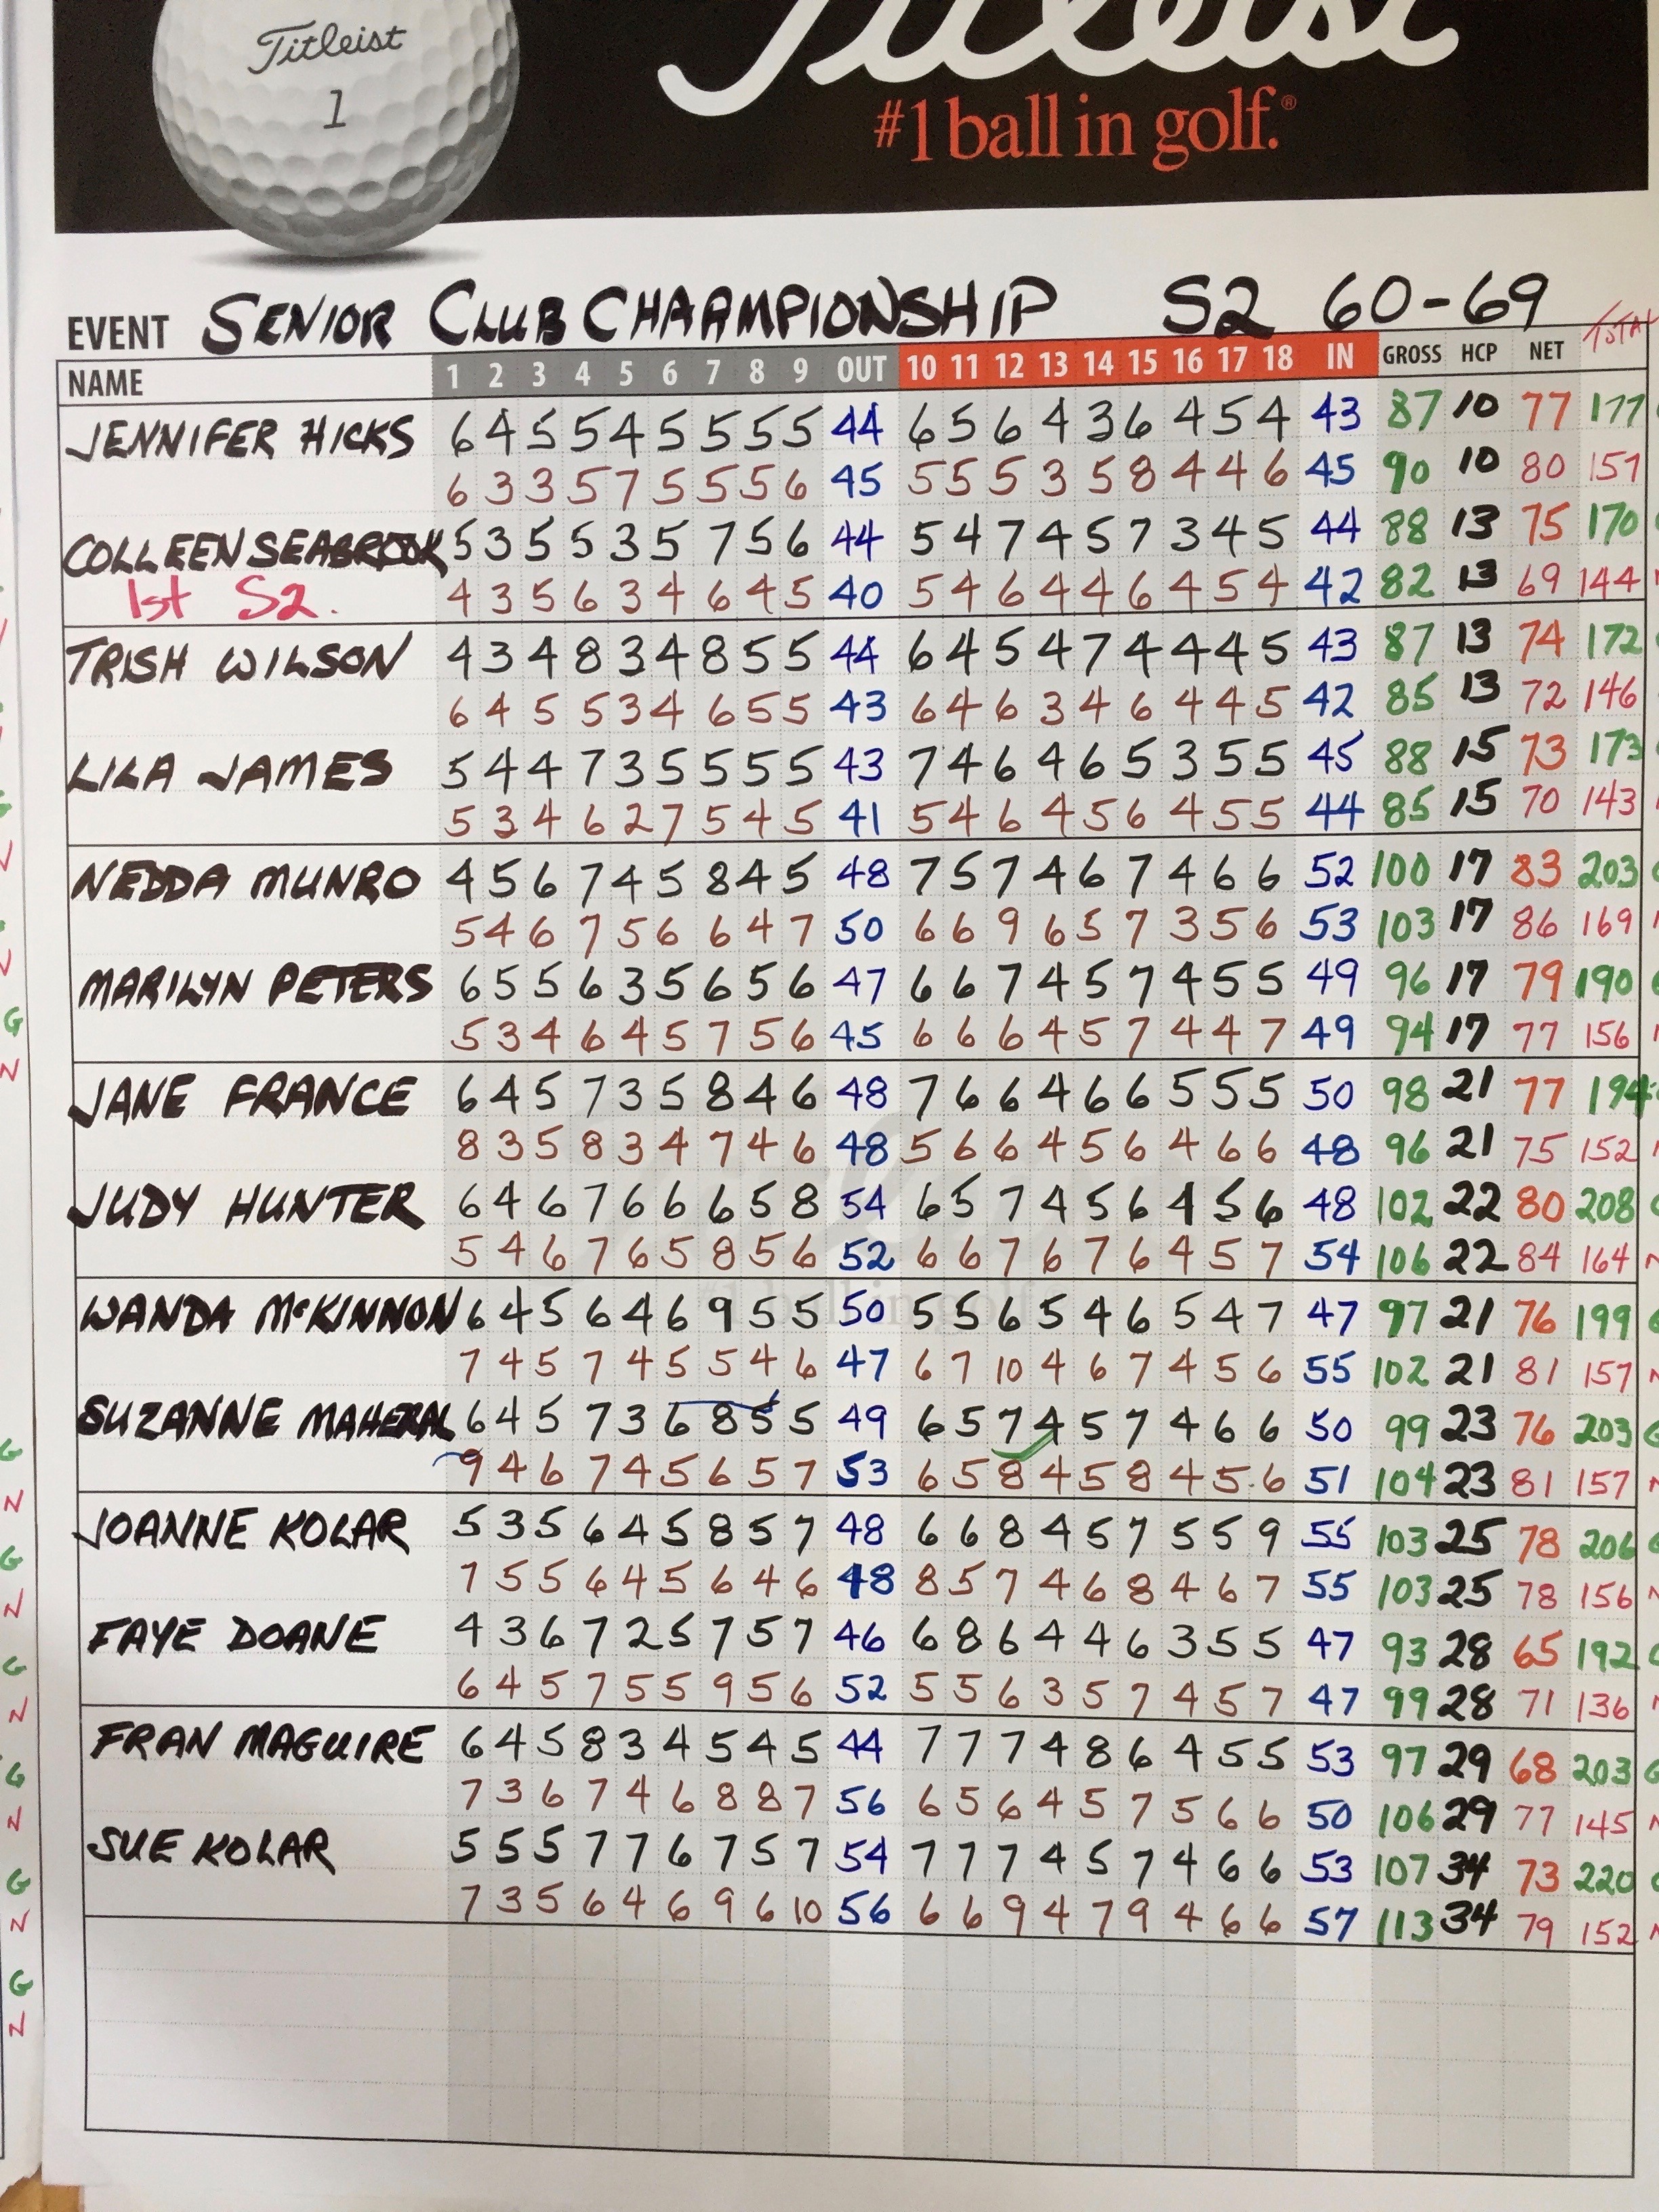 Titleist
1
Titleist
#1 ball in golf.®
EVENT SENIOR CLUB CHAARMPIONSHIP S2 60-69
TOTAL
NAME 1 2 3 4 5 6 7 8 9 OUT 10 11 12 13 14 15 16 17 18 IN GROSS HCP NET
JENNIFER HICKS 6 4 5 5 4 5 5 5 5 44 6 5 6 4 3 6 4 5 4 43 87 10 77 177
6 3 3 5 7 5 5 5 6 45 5 5 5 3 5 8 4 4 6 45 90 10 80 157
COLLEEN SEABROOK 5 3 5 5 3 5 7 5 6 44 5 4 7 4 5 7 3 4 5 44 88 13 75 170
1st S2. 4 3 5 6 3 4 6 4 5 40 5 4 6 4 4 6 4 5 4 42 82 13 69 144
TRISH WILSON 4 3 4 8 3 4 8 5 5 44 6 4 5 4 7 4 4 4 5 43 87 13 74 172
6 4 5 5 3 4 6 5 5 43 6 4 6 3 4 6 4 4 5 42 85 13 72 146
LILA JAMES 5 4 4 7 3 5 5 5 5 43 7 4 6 4 6 5 3 5 5 45 88 15 73 173
5 3 4 6 2 7 5 4 5 41 5 4 6 4 5 6 4 5 5 44 85 15 70 143
NEDDA MUNRO 4 5 6 7 4 5 8 4 5 48 7 5 7 4 6 7 4 6 6 52 100 17 83 203
5 4 6 7 5 6 6 4 7 50 6 6 9 6 5 7 3 5 6 53 103 17 86 169
MARILYN PETERS 6 5 5 6 3 5 6 5 6 47 6 6 7 4 5 7 4 5 5 49 96 17 79 190
5 3 4 6 4 5 7 5 6 45 6 6 6 4 5 7 4 4 7 49 94 17 77 156
JANE FRANCE 6 4 5 7 3 5 8 4 6 48 7 6 6 4 6 6 5 5 5 50 98 21 77 194
8 3 5 8 3 4 7 4 6 48 5 6 6 4 5 6 4 6 6 48 96 21 75 152
JUDY HUNTER 6 4 6 7 6 6 6 5 8 54 6 5 7 4 5 6 4 5 6 48 102 22 80 208
5 4 6 7 6 5 8 5 6 52 6 6 7 6 7 6 4 5 7 54 106 22 84 164
WANDA McKINNON 6 4 5 6 4 6 9 5 5 50 5 5 6 5 4 6 5 4 7 47 97 21 76 199
7 4 5 7 4 5 5 4 6 47 6 7 10 4 6 7 4 5 6 55 102 21 81 157
SUZANNE MAHERAL 6 4 5 7 3 6 8 5 5 49 6 5 7 4 5 7 4 6 6 50 99 23 76 203
9 4 6 7 4 5 6 5 7 53 6 5 8 4 5 8 4 5 6 51 104 23 81 157
JOANNE KOLAR 5 3 5 6 4 5 8 5 7 48 6 6 8 4 5 7 5 5 9 55 103 25 78 206
7 5 5 6 4 5 6 4 6 48 8 5 7 4 6 8 4 6 7 55 103 25 78 156
FAYE DOANE 4 3 6 7 2 5 7 5 7 46 6 8 6 4 4 6 3 5 5 47 93 28 65 192
6 4 5 7 5 5 9 5 6 52 5 5 6 3 5 7 4 5 7 47 99 28 71 136
FRAN MAGUIRE 6 4 5 8 3 4 5 4 5 44 7 7 7 4 8 6 4 5 5 53 97 29 68 203
7 3 6 7 4 6 8 8 7 56 6 5 6 4 5 7 5 6 6 50 106 29 77 145
SUE KOLAR 5 5 5 7 7 6 7 5 7 54 7 7 7 4 5 7 4 6 6 53 107 34 73 220
7 3 5 6 4 6 9 6 10 56 6 6 9 4 7 9 4 6 6 57 113 34 79 152